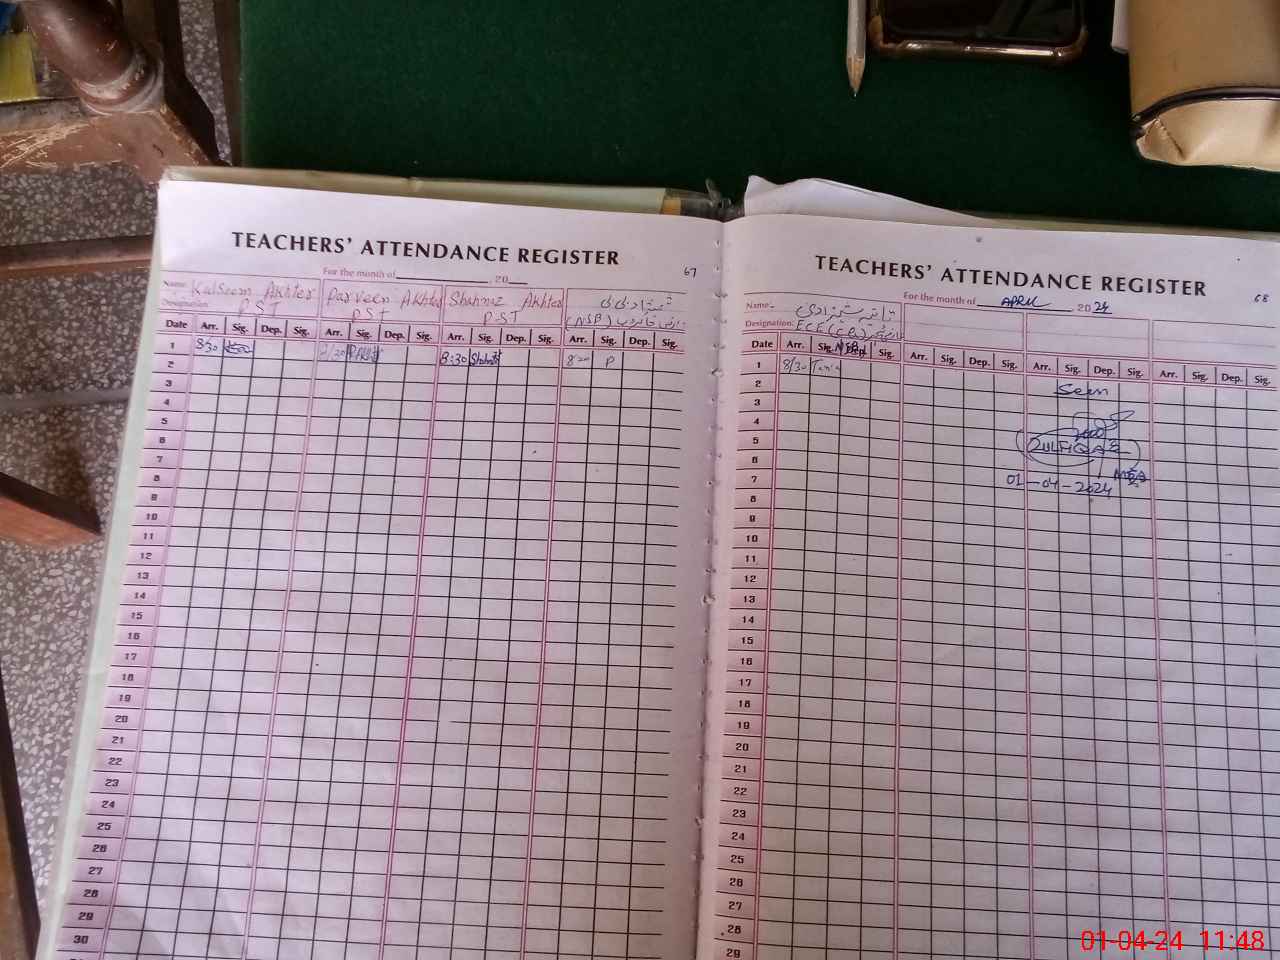 TEACHERS' ATTENDANCE REGISTER
67
For the month of 20
Name Kalseem Akhter Parveen Akhter Shahnaz Akhter
Designation PST PST PST (NSB)
Date Arr. Sig. Dep. Sig. Arr. Sig. Dep. Sig. Arr. Sig. Dep. Sig. Arr. Sig. Dep. Sig.
1 8/30 8/30 8:30 Shahnaz 8:30 P
2
3
4
5
6
7
8
9
10
11
12
13
14
15
16
17
18
19
20
21
22
23
24
25
26
27
28
29
30
TEACHERS' ATTENDANCE REGISTER
68
For the month of APRIL 2024
Name
Designation: ECE
Date Arr. Sig. Dep. Sig. Arr. Sig. Dep. Sig. Arr. Sig. Dep. Sig. Arr. Sig. Dep. Sig.
1 8/30 Tania
2 Seen
3
4
5 ZULFIQAR
6
7 01-04-2024 MEA
8
9
10
11
12
13
14
15
16
17
18
19
20
21
22
23
24
25
26
27
28
29
01-04-24 11:48